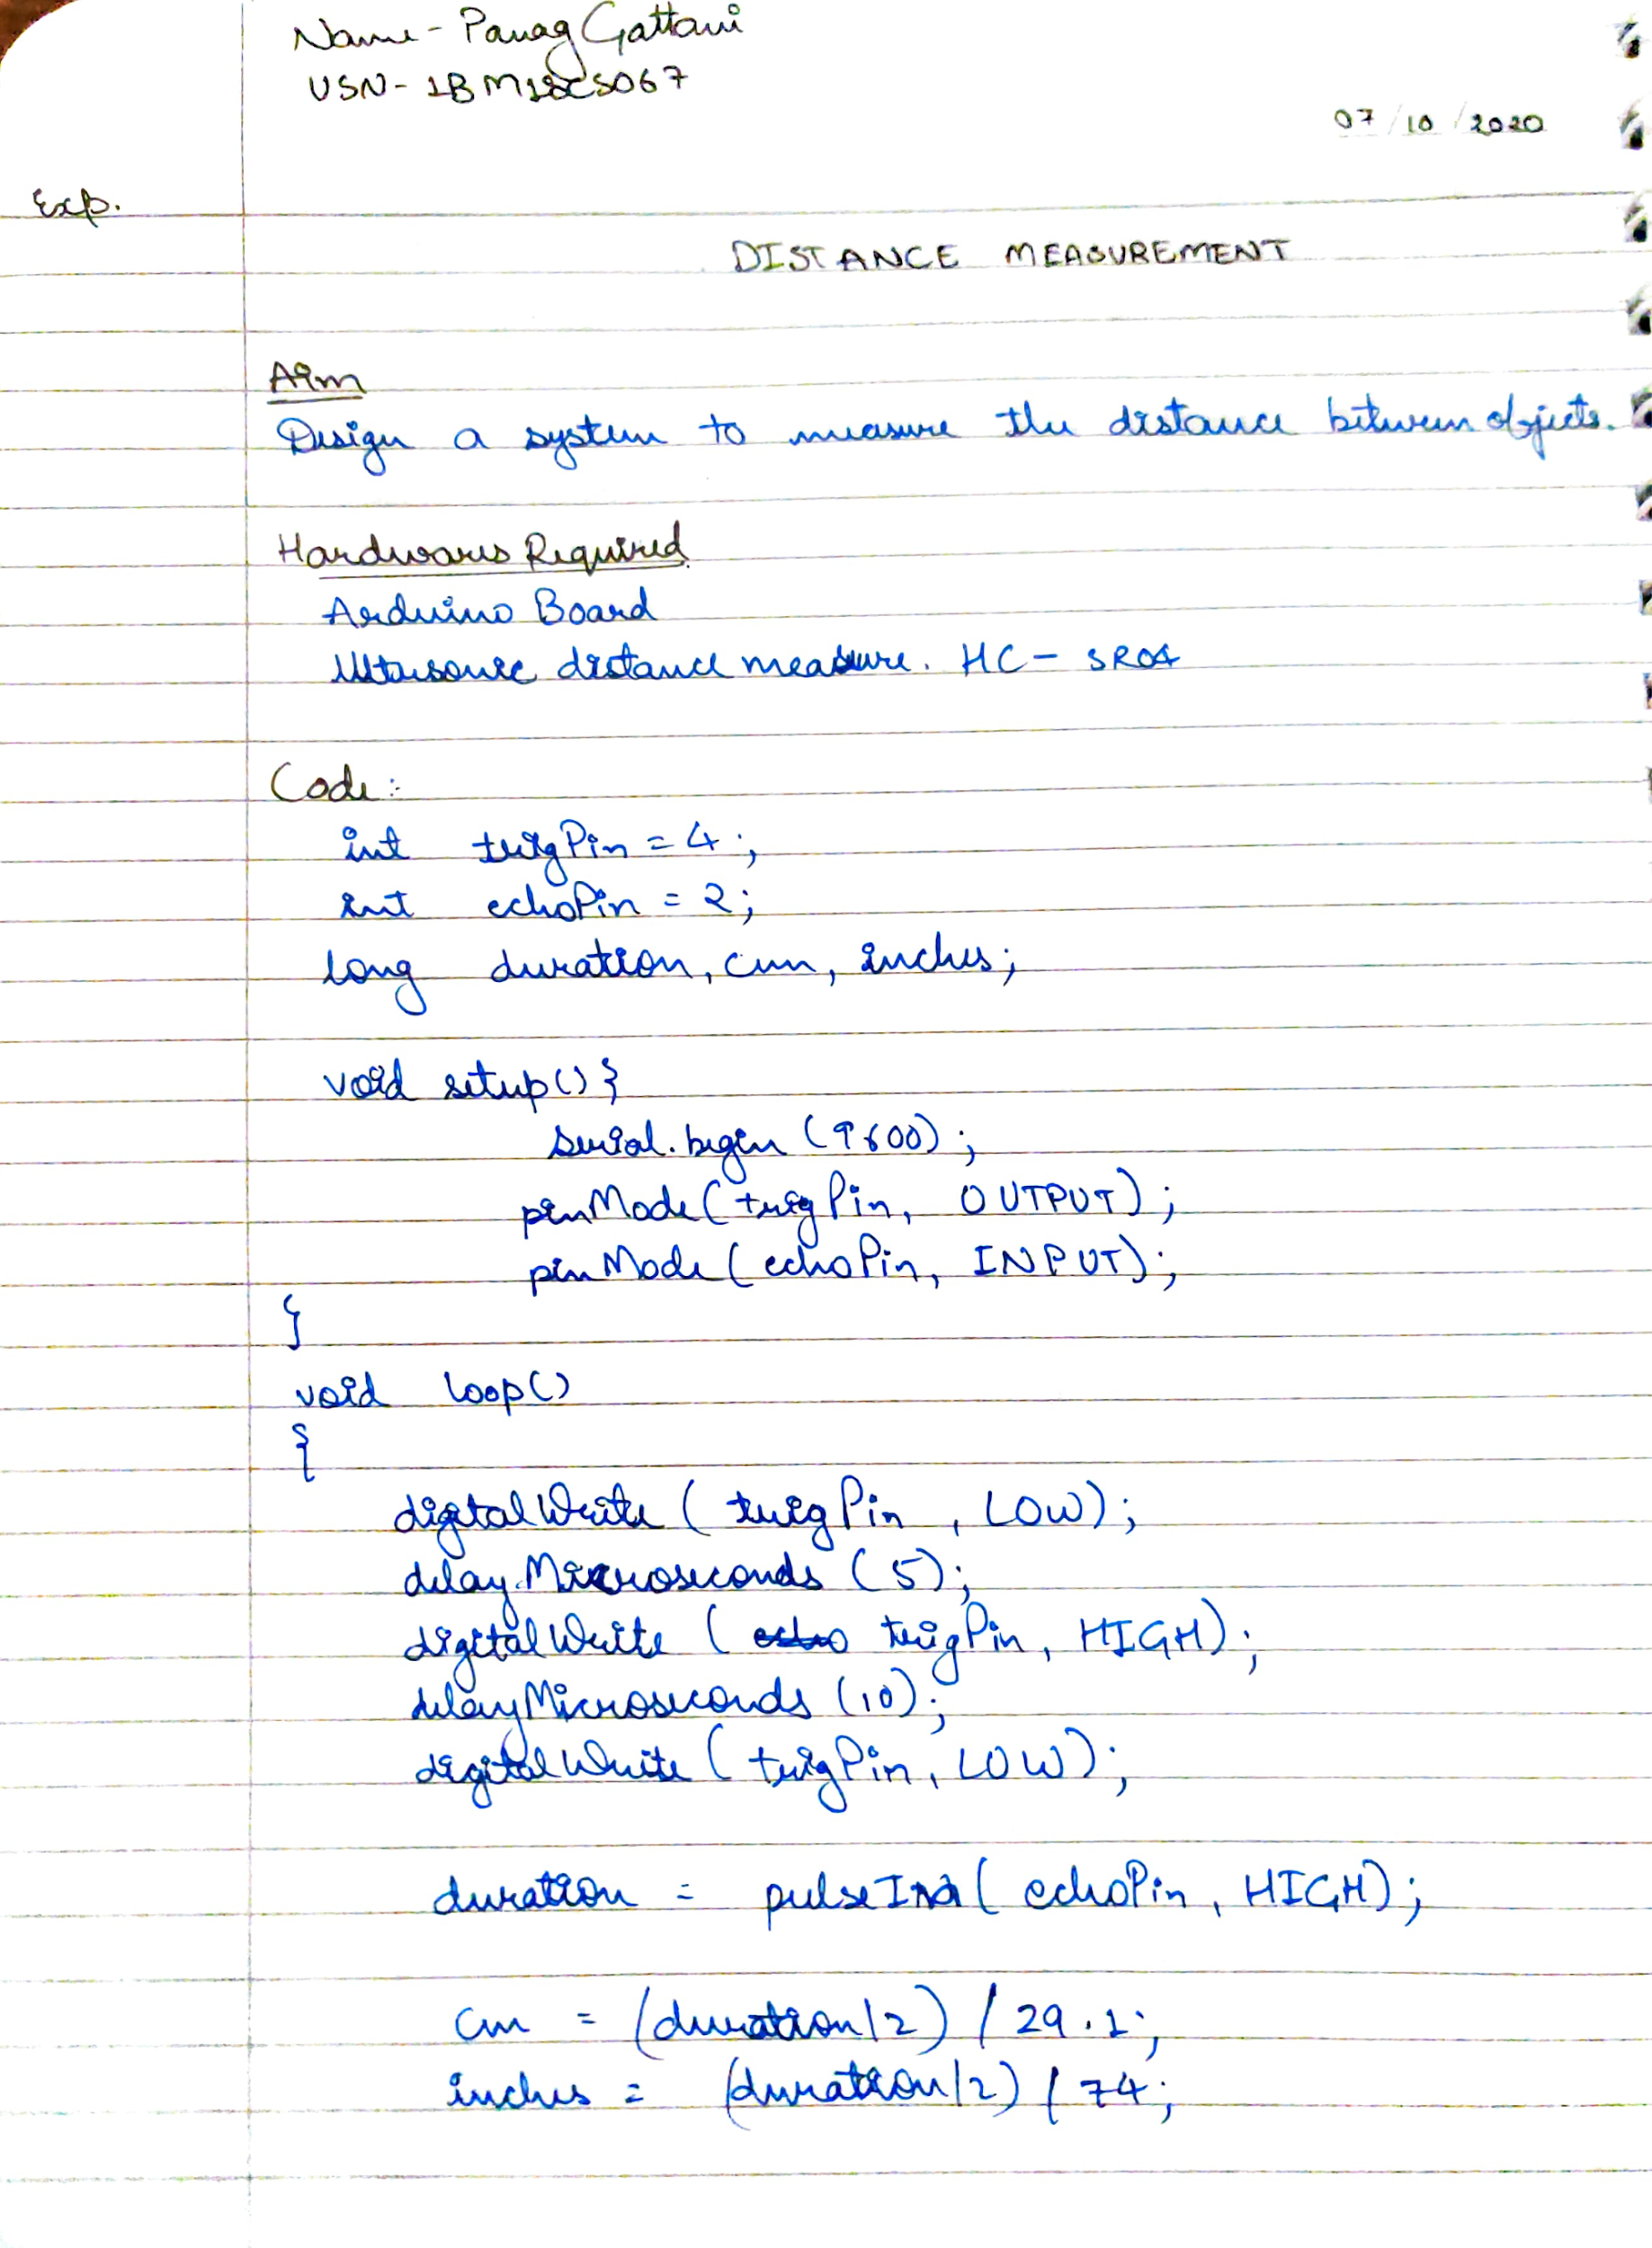 Name - Parag Gattani
USN - 1BM18CS067
07/10/2020
Exp.
DISTANCE MEASUREMENT
Aim
Design a system to measure the distance between objects.
Hardwares Required
Arduino Board
Ultrasonic distance measure. HC - SR04
Code:
int trigPin = 4;
int echoPin = 2;
long duration, cm, inches;
void setup() }
serial.begin (9600);
pinMode (trigPin, OUTPUT);
pinMode (echoPin, INPUT);
}
void loop()
{
digitalWrite ( trigPin , LOW);
delay.Microseconds (5);
digitalWrite ( trigPin, HIGH);
delayMicroseconds (10);
digitalWrite ( trigPin, LOW);
duration = pulseIn ( echoPin, HIGH);
cm = (duration/2) / 29.1;
inches = (duration/2) / 74;